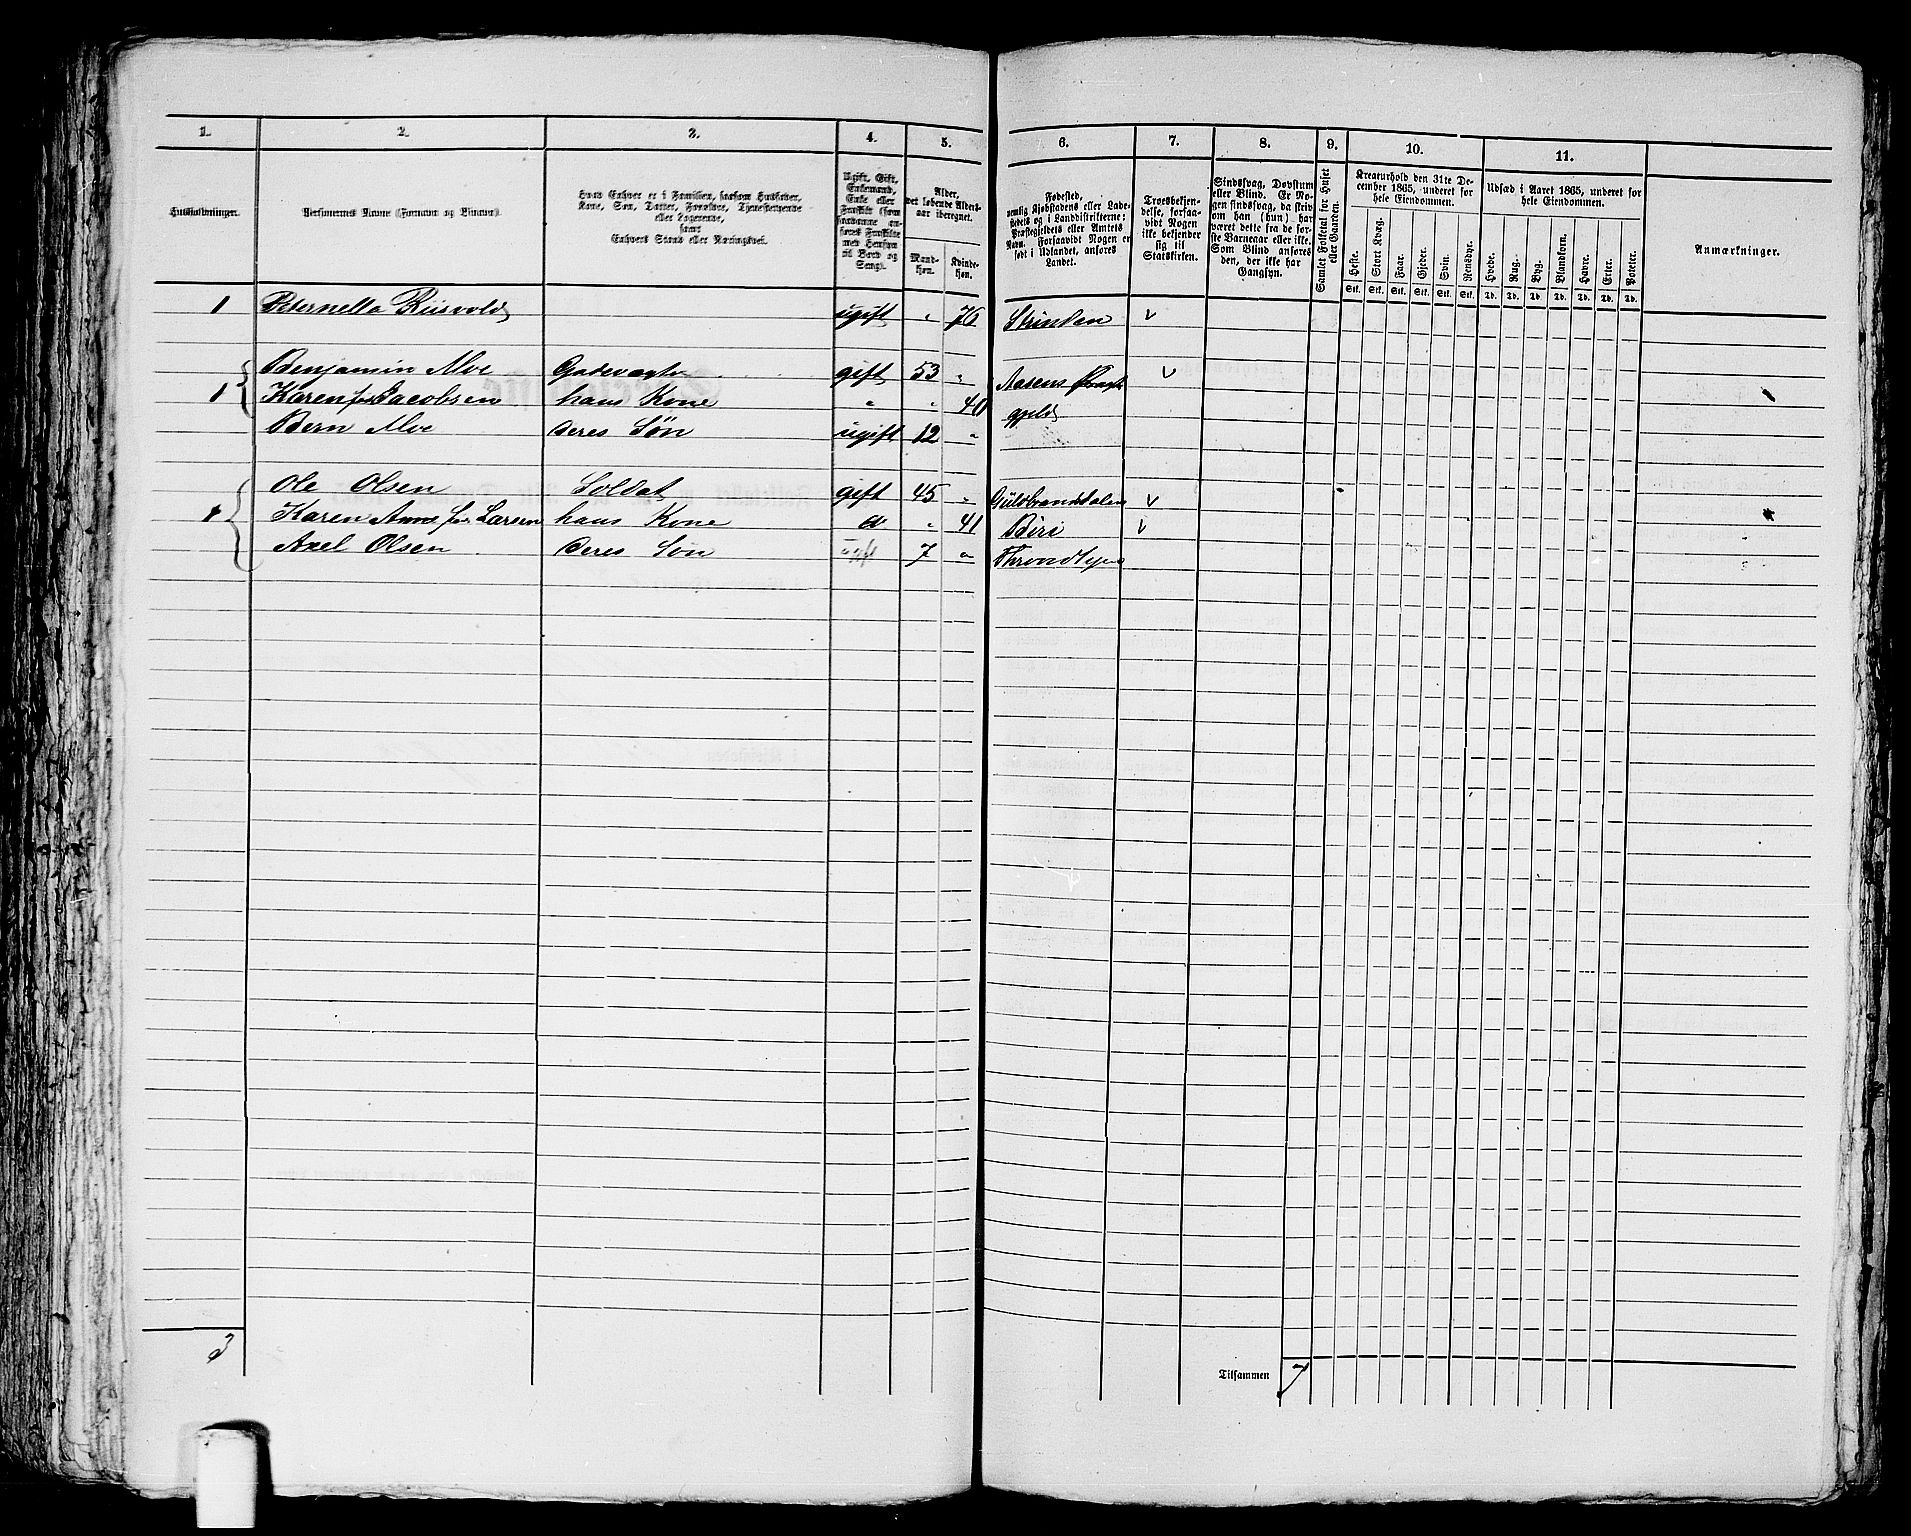 1. 2. 3. 4. 5. 6. 7. 8. 9. 10. 11.
Husholdninger.
Personernes Navne (Fornavn og Tilnavn).
Hvad Enhver er i Familien, saasom Husfader,
Kone, Søn, Datter, Forældre, Tjenestetyende
eller Logerende,
samt
Enhvers Stand eller Næringsvei.
Ugift, Gift,
Enkemand,
Enke eller
Fraskilt (som
saadanne an-
føres Fraskilte
med Hensyn
til Bord og
Seng).
Alder,
det løbende Alders-
aar iberegnet.
Mand-
køn.
Kvinde-
køn.
Fødested,
nemlig Kjøbstadens eller Lade-
stedets og i Landdistrikterne:
Præstegjeldets eller Amtets
Navn. Forsaavidt Nogen er
født i Udlandet, anføres
Landet.
Troesbekjen-
delse, forsaa-
vidt Nogen
ikke bekjender
sig til
Statskirken.
Sindssvag, Døvstum
eller Blind. Er No-
gen sindssvag, da skriv
om han (hun) har
været dette fra de før-
ste Barneaar eller ikke.
Som Blind anføres
den, der ikke har
Gangsyn.
Samlet Folketal for Huset
eller Gaarden.
Kreaturhold den 31te De-
cember 1865, underet for
hele Eiendommen.
Heste. Stort Kvæg. Faar. Gjeder. Svin. Rensdyr.
Stk. Stk. Stk. Stk. Stk. Stk.
Udsæd i Aaret 1865, underet for
hele Eiendommen.
Hvede. Rug. Byg. Blandkorn. Havre. Erter. Poteter.
Td. Td. Td. Td. Td. Td. Td.
Anmærkninger.
1 Peternella Riisvold ugift " 76 Strinden
Benjamin Alve Gadevægter gift 53 " Aasens Præste
1 Karen f. Jacobsen hans Kone " " 40 gjeld
Bern Alve deres Søn ugift 12 "
Ole Olsen Soldat gift 45 " Guldbrandsdalen
1 Karen Anne f. Larsen hans Kone d " 41 Biri
Axel Olsen deres Søn ugft 7 " Throndhjem
3
Tilsammen 7